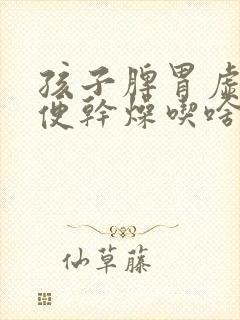 孩子脾胃虛
便幹燥喫啥
仙草藤